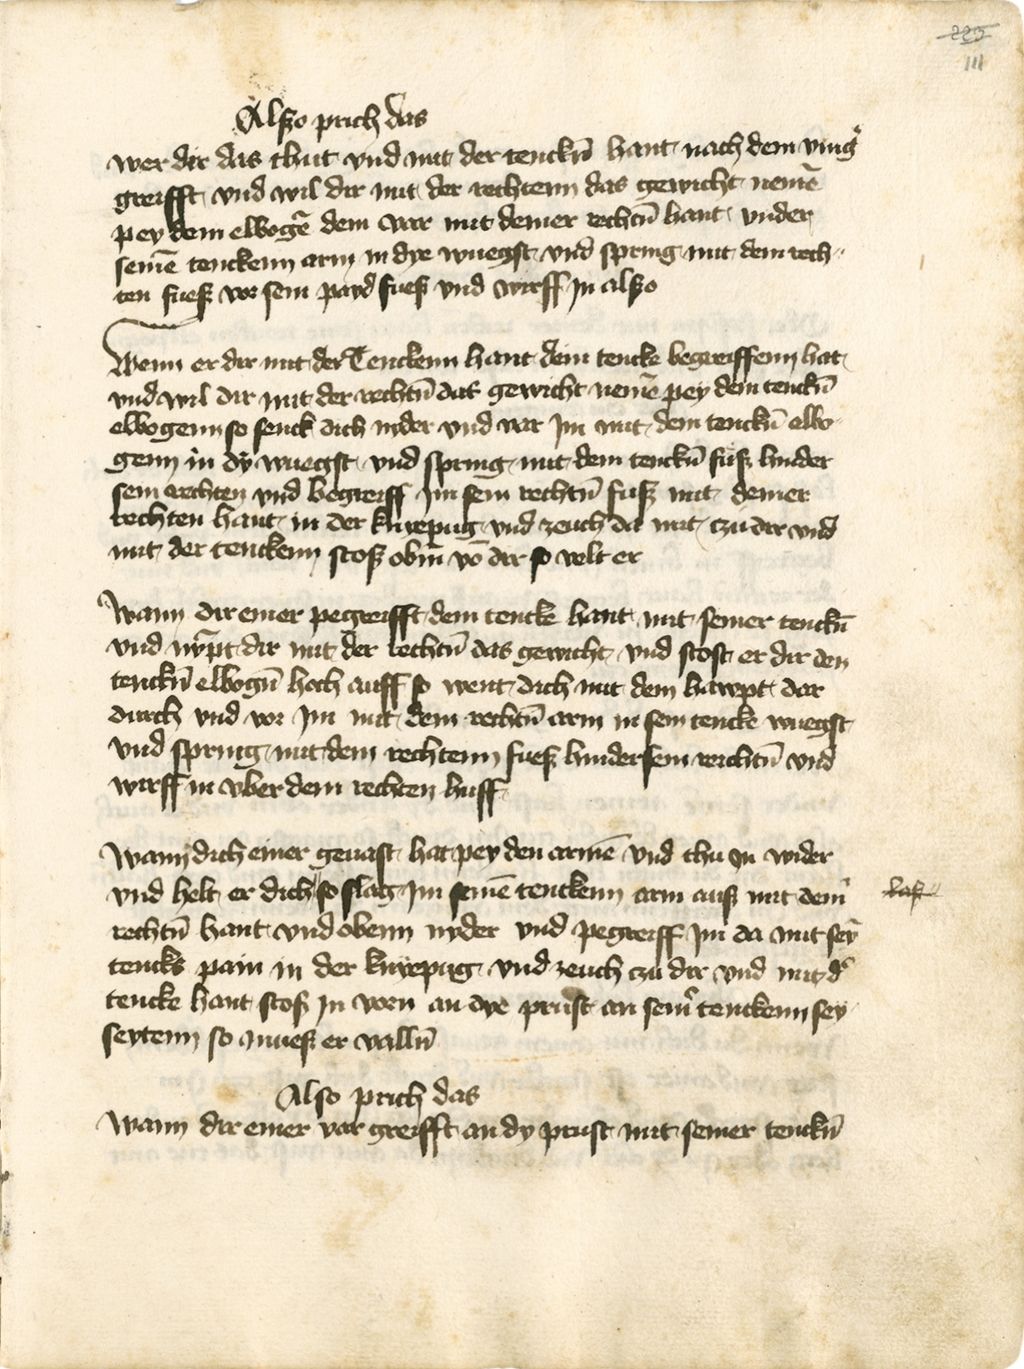 225
111
Alszo prich das
wer dir das thut vnd mit der tenckn̄ hant nach dem ving̉
greifft vnd wil dir mit der rechtenn das gewicht nemē
pey dem elbogē dem var mit deiner rechtn̄ hant vnder
seinē tenckenn arm in dye wuegst vnd spring mit dem rech-
ten fuesz vor sein payd fuesz vnd wirff in alszo
Wenn er dir mit der Tenckenn hant dein tencke begreiffenn hat
vnd wil dir mit der rechtn̄ das gewicht nemē pey dem tenckn̄
elbogenn so senck dich nyder vnd var Im mit dem tenckn̄ elbo-
genn in dy wuegst vnd spring mit dem tenckn̄ fusz hinder
sein rechten vnd begreiff Im sein rechtn̄ fusz mit deiner
rechten hant in der knyepug vnd zeuch da mit czu dir vnd
mit der tenckenn stosz obm̄ vō dir so velt er
Wann dir einer pegreifft dein tencke hant mit seiner tenckn̄
vnd nȳpt dir mit der rechtn̄ das gewicht vnd stost er dir den
tenckn̄ elbogn̄ hoch auff so went dich mit dem hawpt dar
durch vnd vor Im mit dem rechtn̄ arm in sein tencke wuegst
vnd spring mit dem rechtenn fuesz hinder sein rechtn̄ vnd
wirff in vber dein rechten huff
Wann dich einer geuast hat pey den armē vnd thu In wider
vnd helt er dich so slag Im seinē tenckenn arm ausz mit dein̉
rechtn̄ hant vnd obenn nyder vnd pegreiff Im da mit seȳ
tencks pain in der knyepug vnd zeuch czu dir vnd mit d̉
tencke hant stosz In vorn an dye prust an sein̉ tenckenn sey-
seytenn so muesz er valln̄
Also prich das
Wann dir einer vor greifft an dy prust mit seiner tenckn̄